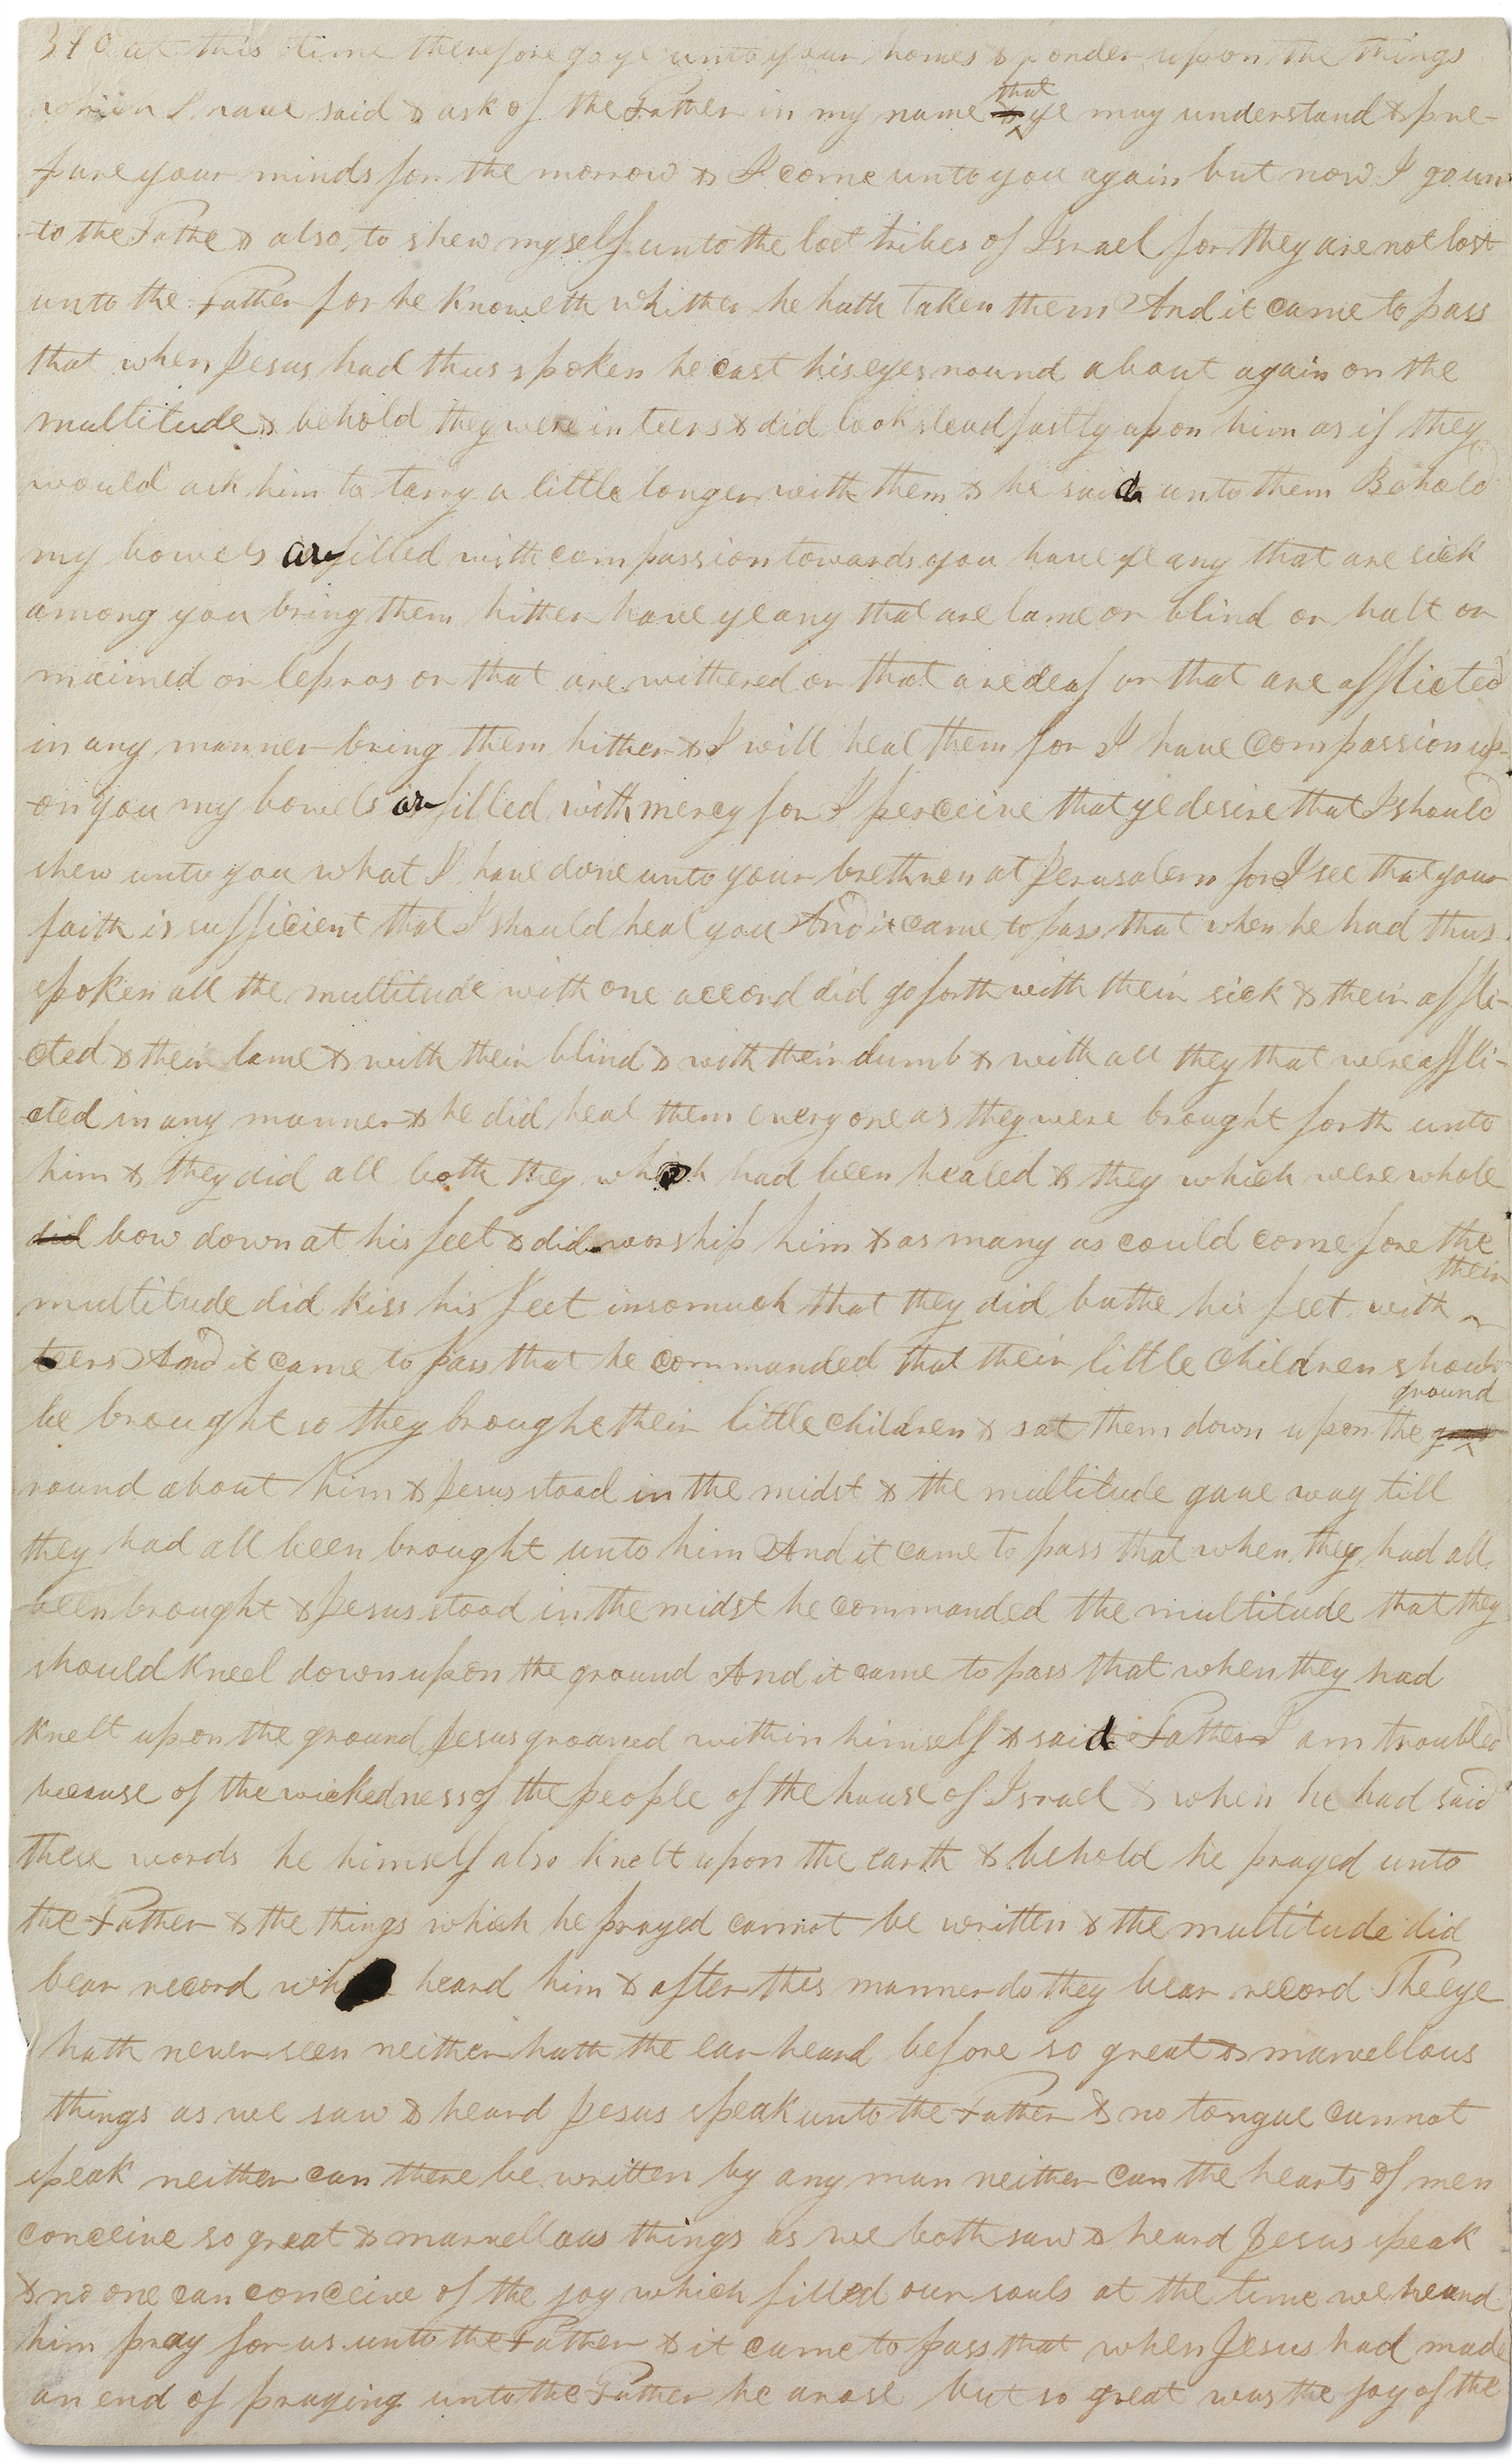 370 at this time therefore go ye unto your homes & ponder upon the things
which I have said & ask of the Father in my name & that ye may understand & pre-
pare your minds for the morrow & I come unto you again but now I go un-
to the Fathe & also to shew myself unto the lost tribes of Israel for they are not lost
unto the Father for he knoweth whither he hath taken them And it came to pass
that when Jesus had thus spoken he cast his eyes round about again on the
multitude & behold they were in teers & did look steadfastly upon him as if they
would ask him to tarry a little longer with them & he said unto them Behold
my bowels are filled with compassion towards you have ye any that are sick
among you bring them hither have ye any that are lame or blind or halt or
maimed or lepros or that are withered or that are deaf or that are afflicted
in any manner bring them hither & I will heal them for I have compassion up-
on you my bowels are filled with mercy for I perceive that ye desire that I should
shew unto you what I have done unto your brethren at Jerusalem for I see that your
faith is sufficient that I should heal you And it came to pass that when he had thus
spoken all the multitude with one accord did go forth with their sick & their affli-
cted & their lame & with their blind & with their dumb & with all they that were affli-
cted in any manner & he did heal them every one as they were brought forth unto
him & they did all both they which had been healed & they which were whole
did bow down at his feet & did worship him & as many as could come fore the
multitude did kiss his feet insomuch that they did bathe his feet with their
teers And it came to pass that he commanded that their little children should
be brought so they brought their little children & sat them down upon the ground
round about him & Jesus stood in the midst & the multitude gave way till
they had all been brought unto him And it came to pass that when they had all
been brought & Jesus stood in the midst he commanded the multitude that they
should kneel down upon the ground And it came to pass that when they had
knelt upon the ground Jesus groaned within himself & said Father I am troubled
because of the wickedness of the people of the house of Israel & when he had said
these words he himself also knelt upon the earth & behold he prayed unto
the Father & the things which he prayed cannot be written & the multitude did
bear record wh heard him & after this manner do they bear record The eye
hath never seen neither hath the ear heard before so great & marvellous
things as we saw & heard Jesus speak unto the Father & no tongue cannot
speak neither can there be written by any man neither can the hearts of men
conceive so great & marvellous things as we both saw & heard Jesus speak
& no one can conceive of the joy which filled our souls at the time we heard
him pray for us unto the Father & it came to pass that when Jesus had made
an end of praying unto the Father he arose but so great was the joy of the